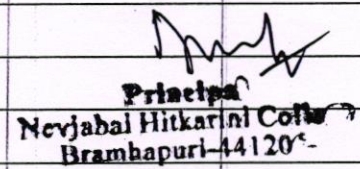 Principal
Nevjabai Hitkarini College
Bramhapuri-441206